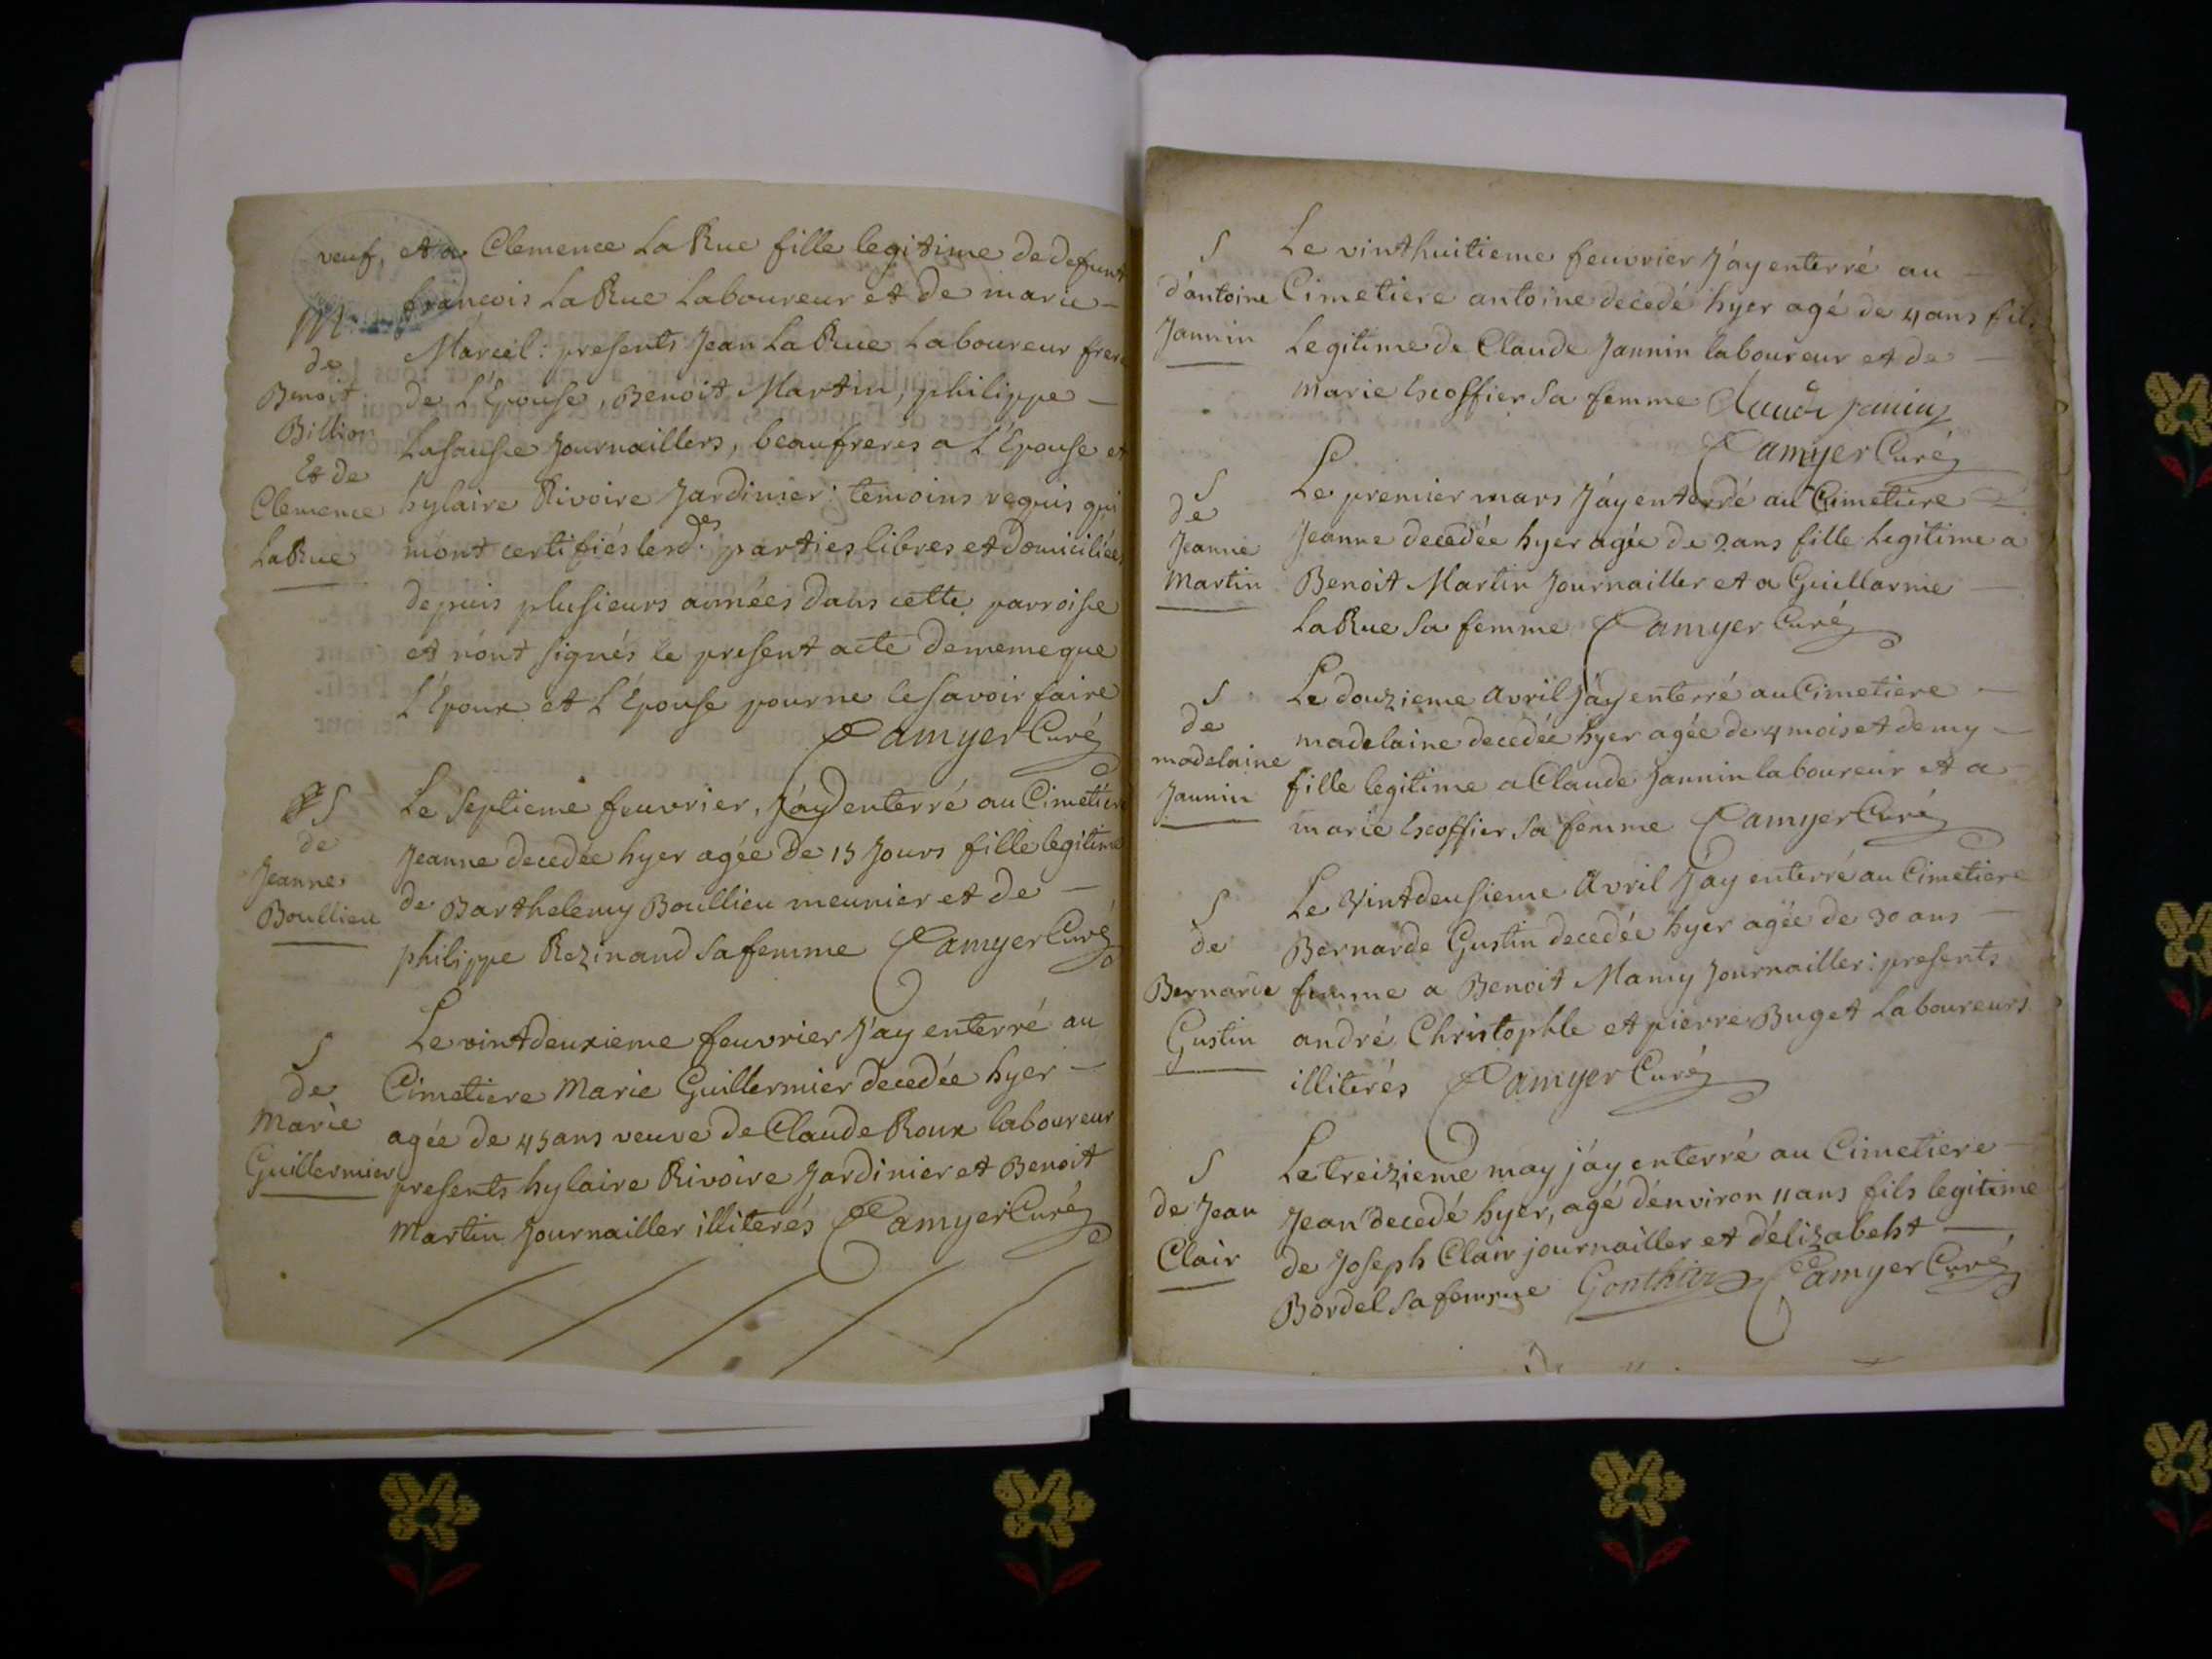 veuf, et a Clemence LaRue fille legitime de defunt
françois LaRue Laboureur et de marie
M
de
Benoit
Billion
Et de
Clemence
LaRue
Marcel : presents Jean LaRue Laboureur frere
de L'Epouse, Benoit Martin, philippe
Lasausse Journaillers, beaufreres a L'Epouse et
hylaire Rivoire Jardinier : temoins requis qui
mont certifiés lesd.es parties libres et domiciliées
depuis plusieurs années dans cette parroisse
et n'ont signés le present acte de meme que
L'Epoux et L'Epouse pour ne le savoir faire
Camyer Curé
S
de
Jeanne
Boullieu
Le Septieme feuvrier, J'ay enterré au Cimetiere
Jeanne decedée hyer agée de 15 Jours fille legitime
de Barthelemy Boullieu meunier et de
philippe Rezinand sa femme Camyer Curé
S
de
Marie
Guillermier
Le vintdeuxieme feuvrier J'ay enterré au
Cimetiere Marie Guillermier decedée hyer
agée de 45 ans veuve de Claude Roux laboureur
presents hylaire Rivoire Jardinier et Benoit
Martin Journailler illiterés Camyer Curé
S
d'antoine
Jannin
Le vinthuitieme feuvrier J'ay enterré au
Cimetiere antoine decedé hyer agé de 4 ans fils
Legitime de Claude Jannin laboureur et de
marie Escoffier sa femme Claude janin
Camyer Curé
S
de
Jeanne
Martin
Le premier mars J'ay enterré au Cimetiere
Jeanne decedée hyer agée de 2 ans fille Legitime a
Benoit Martin Journailler et a Guillarmie
LaRue sa femme Camyer Curé
S
de
madelaine
Jannin
Le douzieme avril J'ay enterré au Cimetiere
madelaine decedée hyer agée de 4 mois et demy
fille legitime a Claude Jannin laboureur et a
marie Escoffier sa femme Camyer Curé
S
de
Bernarde
Gustin
Le Vintdeusieme Avril J'ay enterré au Cimetiere
Bernarde Gustin decedée hyer agée de 30 ans
femme a Benoit Mamy Journailler : presents
andré Christophle et pierre Buget Laboureurs
illiterés Camyer Curé
S
de Jean
Clair
Le treizieme may j'ay enterré au Cimetiere
Jean decedé hyer, agé d'environ 11 ans fils legitime
de Joseph Clair journailler et d'élizabeht
Bordel sa femme Gonthier Camyer Curé